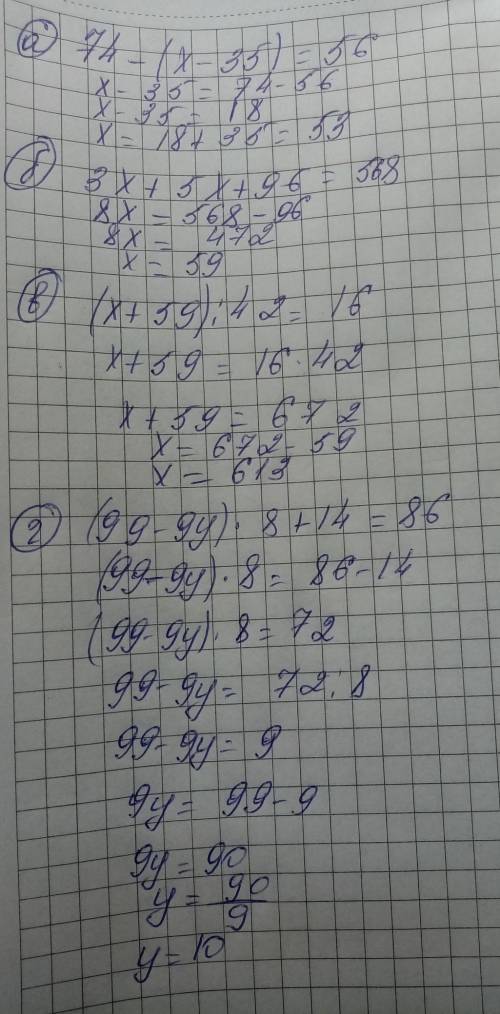 а) 74 - (x - 35) = 56
x - 35 = 74 - 56
x - 35 = 18
x = 18 + 35 = 53
б) 3x + 5x + 96 = 568
8x = 568 - 96
8x = 472
x = 59
в) (x + 59) : 42 = 16
x + 59 = 16 · 42
x + 59 = 672
x = 672 - 59
x = 613
г) (99 - 9y) · 8 + 14 = 86
(99 - 9y) · 8 = 86 - 14
(99 - 9y) · 8 = 72
99 - 9y = 72 : 8
99 - 9y = 9
9y = 99 - 9
9y = 90
y = 90/9
y = 10